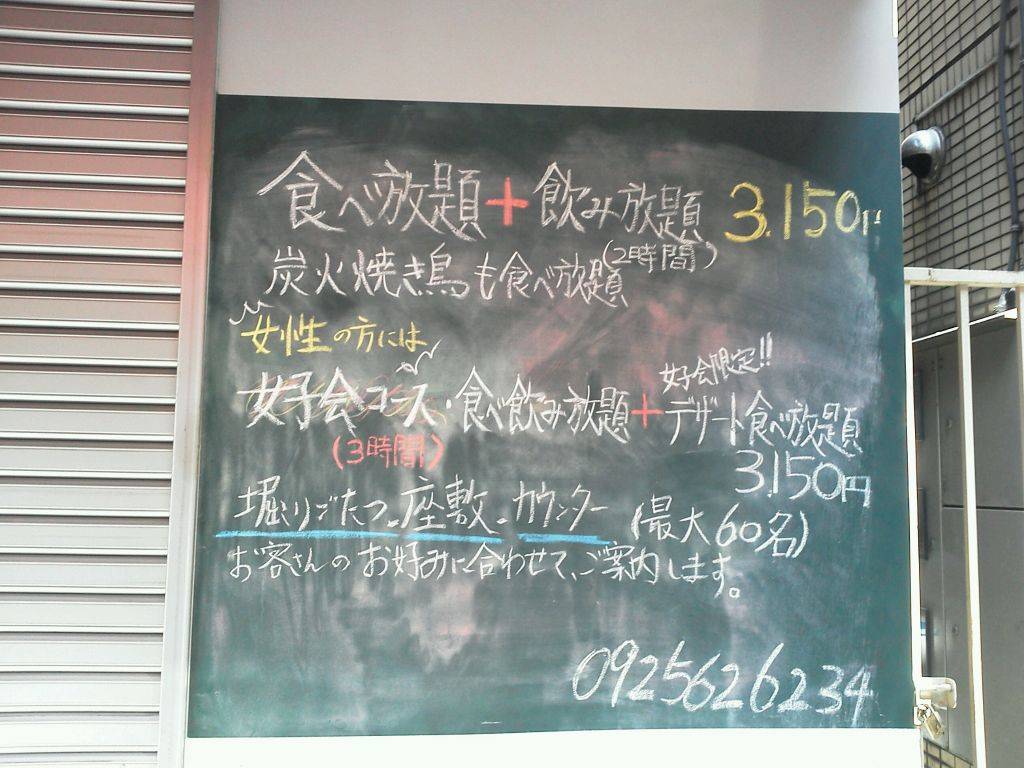 食べ放題+飲み放題 3.150円
(2時間)
炭火焼き鳥も食べ放題
女性の方には
女子会限定!!
女子会コース・食べ飲み放題+デザート食べ放題
(3時間)
3.150円
堀りごたつ、座敷、カウンター (最大60名)
お客さんのお好みに合わせて、ご案内します。
0925626234